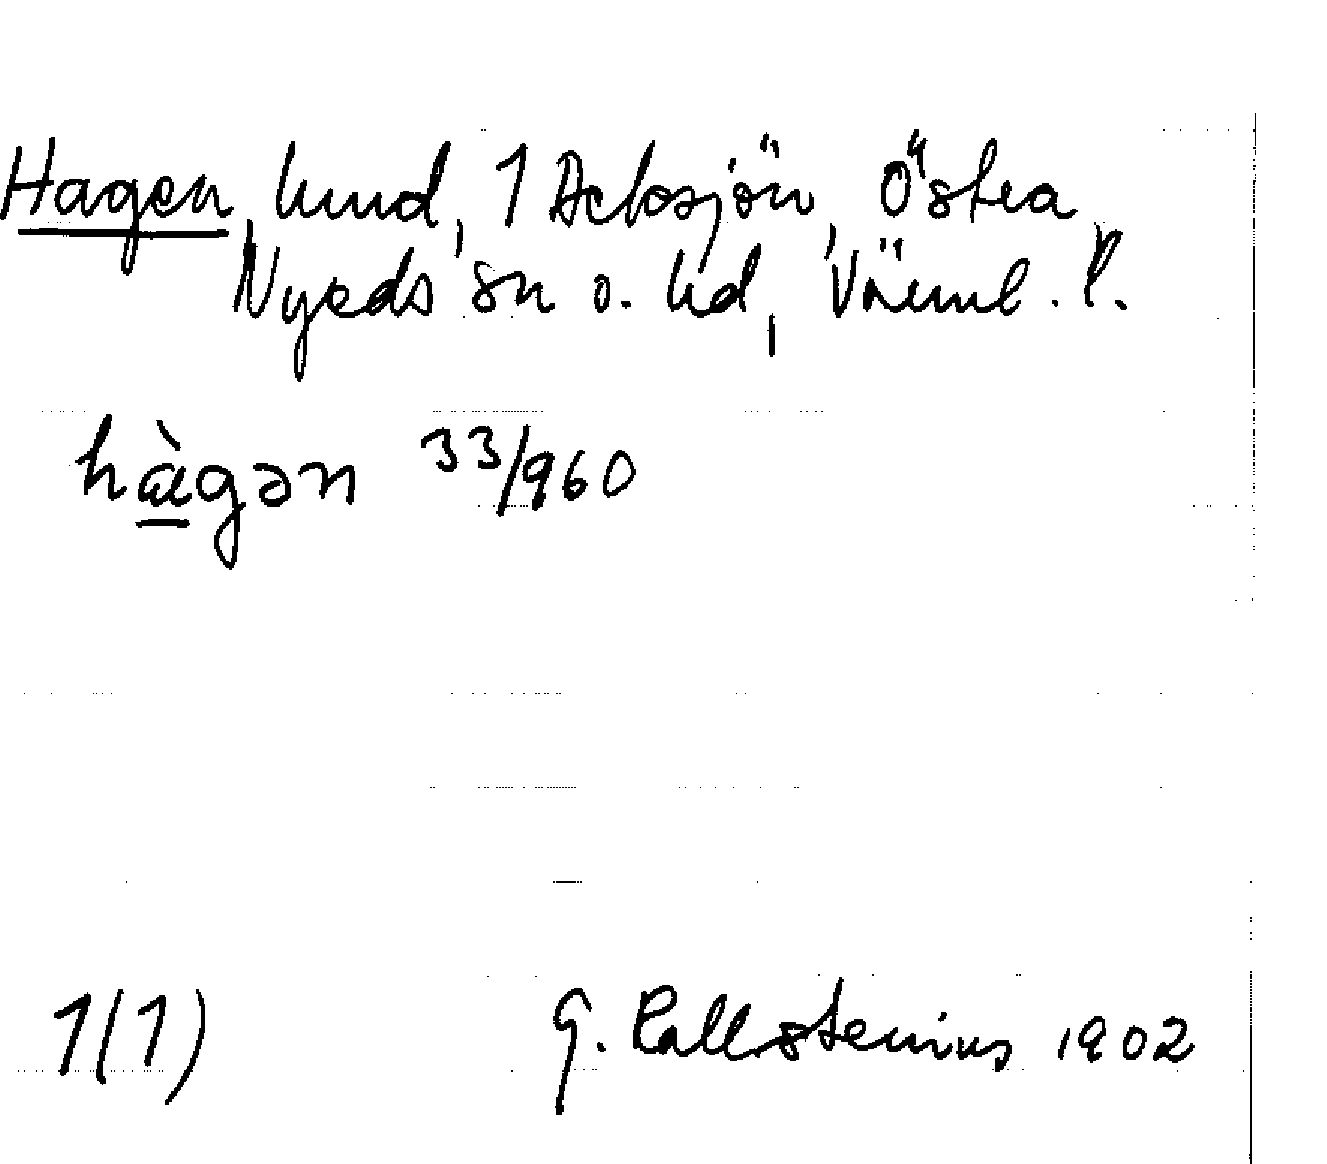 Hagen, hmd, 1 Acksjön, Östra
Nyeds sn o. hd, Värml. l.
hàgən 33/960
1(1) G. Kallstenius 1902